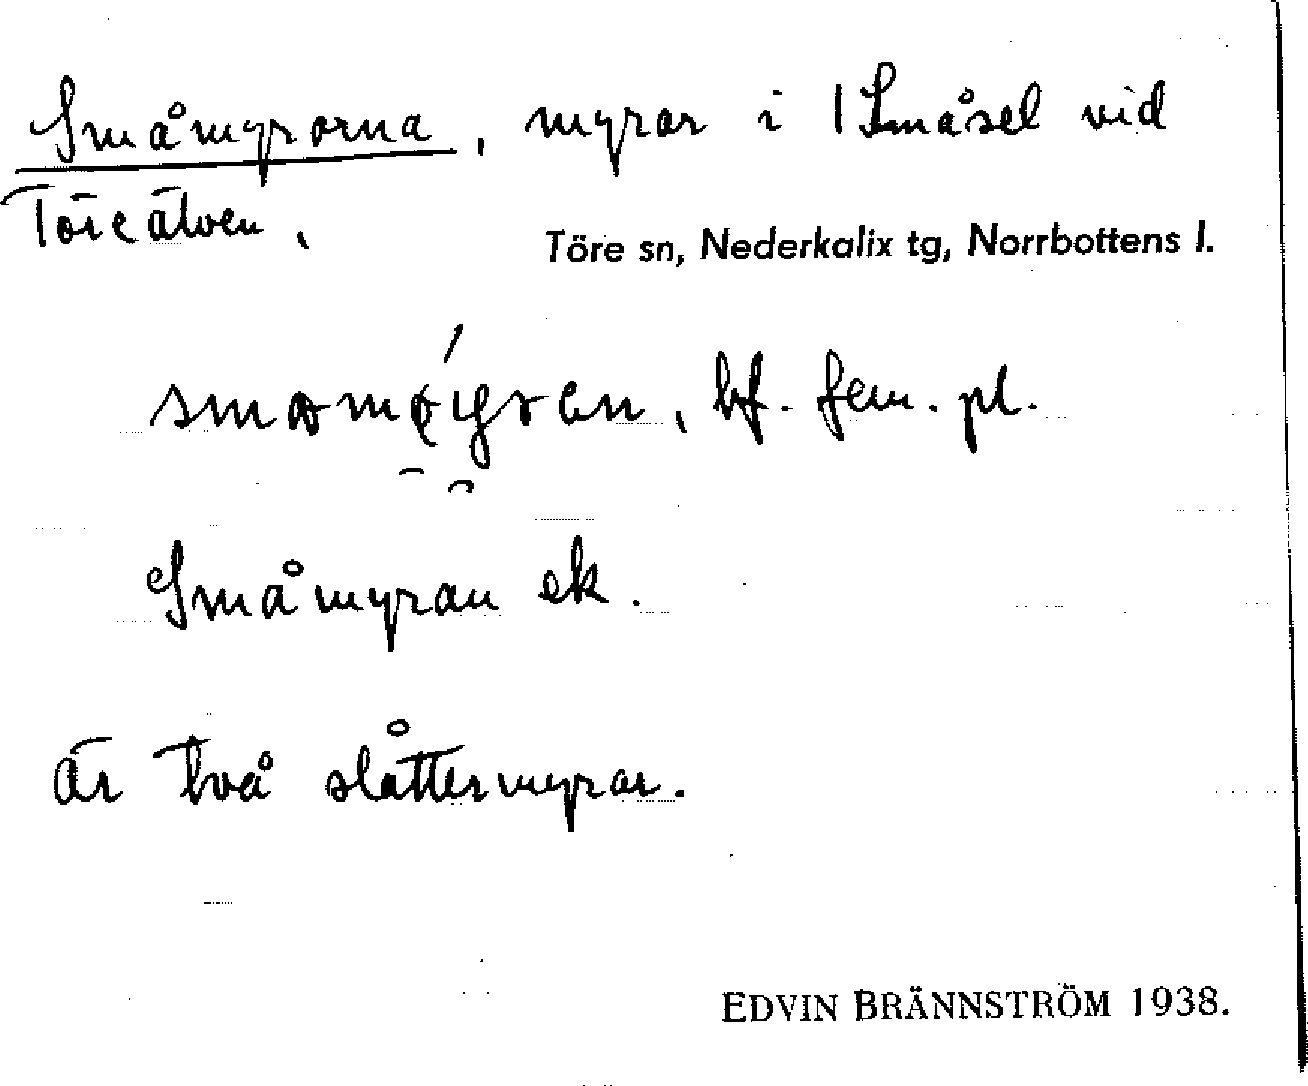 Småmyrorna, myror i 1 Småsel vid
Töreälven.
Töre sn, Nederkalix tg, Norrbottens l.
bf. fem. pl.
Småmyran ek.
är två slåttermyrar.
EDVIN BRÄNNSTRÖM 1938.